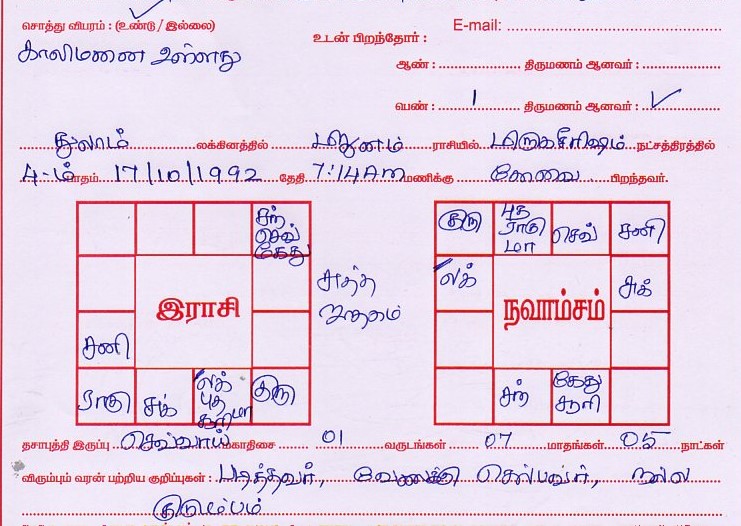 சொத்து விபரம் : (உண்டு / இல்லை)
காலிமனை உள்ளது
E-mail:
உடன் பிறந்தோர் :
ஆண் : திருமணம் ஆனவர் :
பெண் : 1 திருமணம் ஆனவர் : ✓
துலாம் லக்கினத்தில் மிதுனம் ராசியில் மிருகசீரிஷம் நட்சத்திரத்தில்
4-ம் பாதம் 17/10/1992 தேதி 7:14 AM மணிக்கு கோவை பிறந்தவர்.
சந்
செவ்
கேது
சனி
ராகு சுக் லக்
புத
சூரி மா குரு
இராசி
சுத்த
ஜாதகம்
குரு புத
ராகு
மா செவ் சனி
லக் சுக்
சந் கேது
சூரி
நவாம்சம்
தசாபுத்தி இருப்பு செவ்வாய் மகாதிசை 01 வருடங்கள் 07 மாதங்கள் 05 நாட்கள்
விரும்பும் வரன் பற்றிய குறிப்புகள் : படித்தவர், வேலைக்கு செல்பவர், நல்ல
குடும்பம்